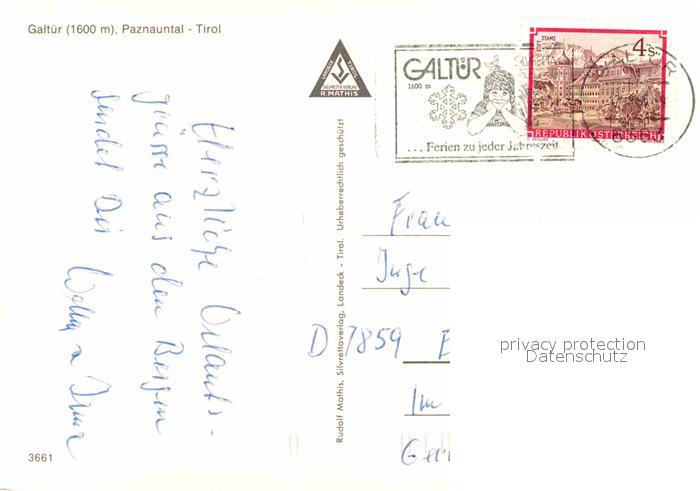 Galtür (1600 m), Paznauntal - Tirol
Herzliche Urlaubs-
grüsse aus den Bergen
sendet Dir
LANDECK TIROL
SILVRETTA VERLAG
R. MATHIS
Rudolf Mathis, Silvrettaverlag, Landeck - Tirol. Urheberrechtlich geschützt!
GALTÜR
1600 m
... Ferien zu jeder Jahreszeit
STIFT STAMS
4 S
REPUBLIK ÖSTERREICH
Frau
Inge
D 7859 E
Im
Ger
privacy protection
Datenschutz
3661